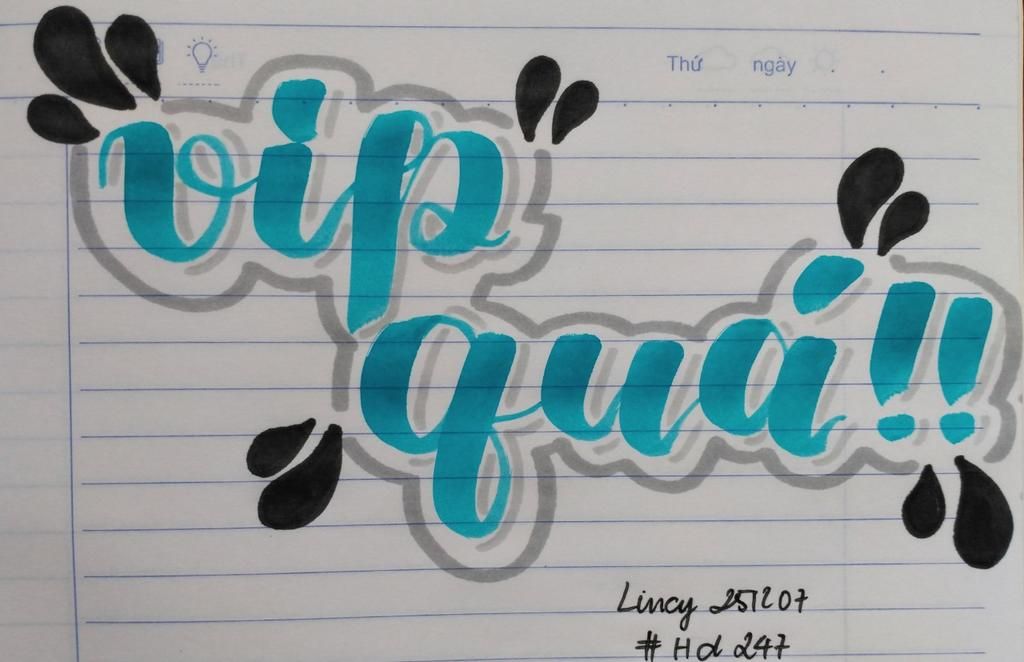 Thứ ngày . .
vip
quá!!
Lincy 251207
# Hd 247